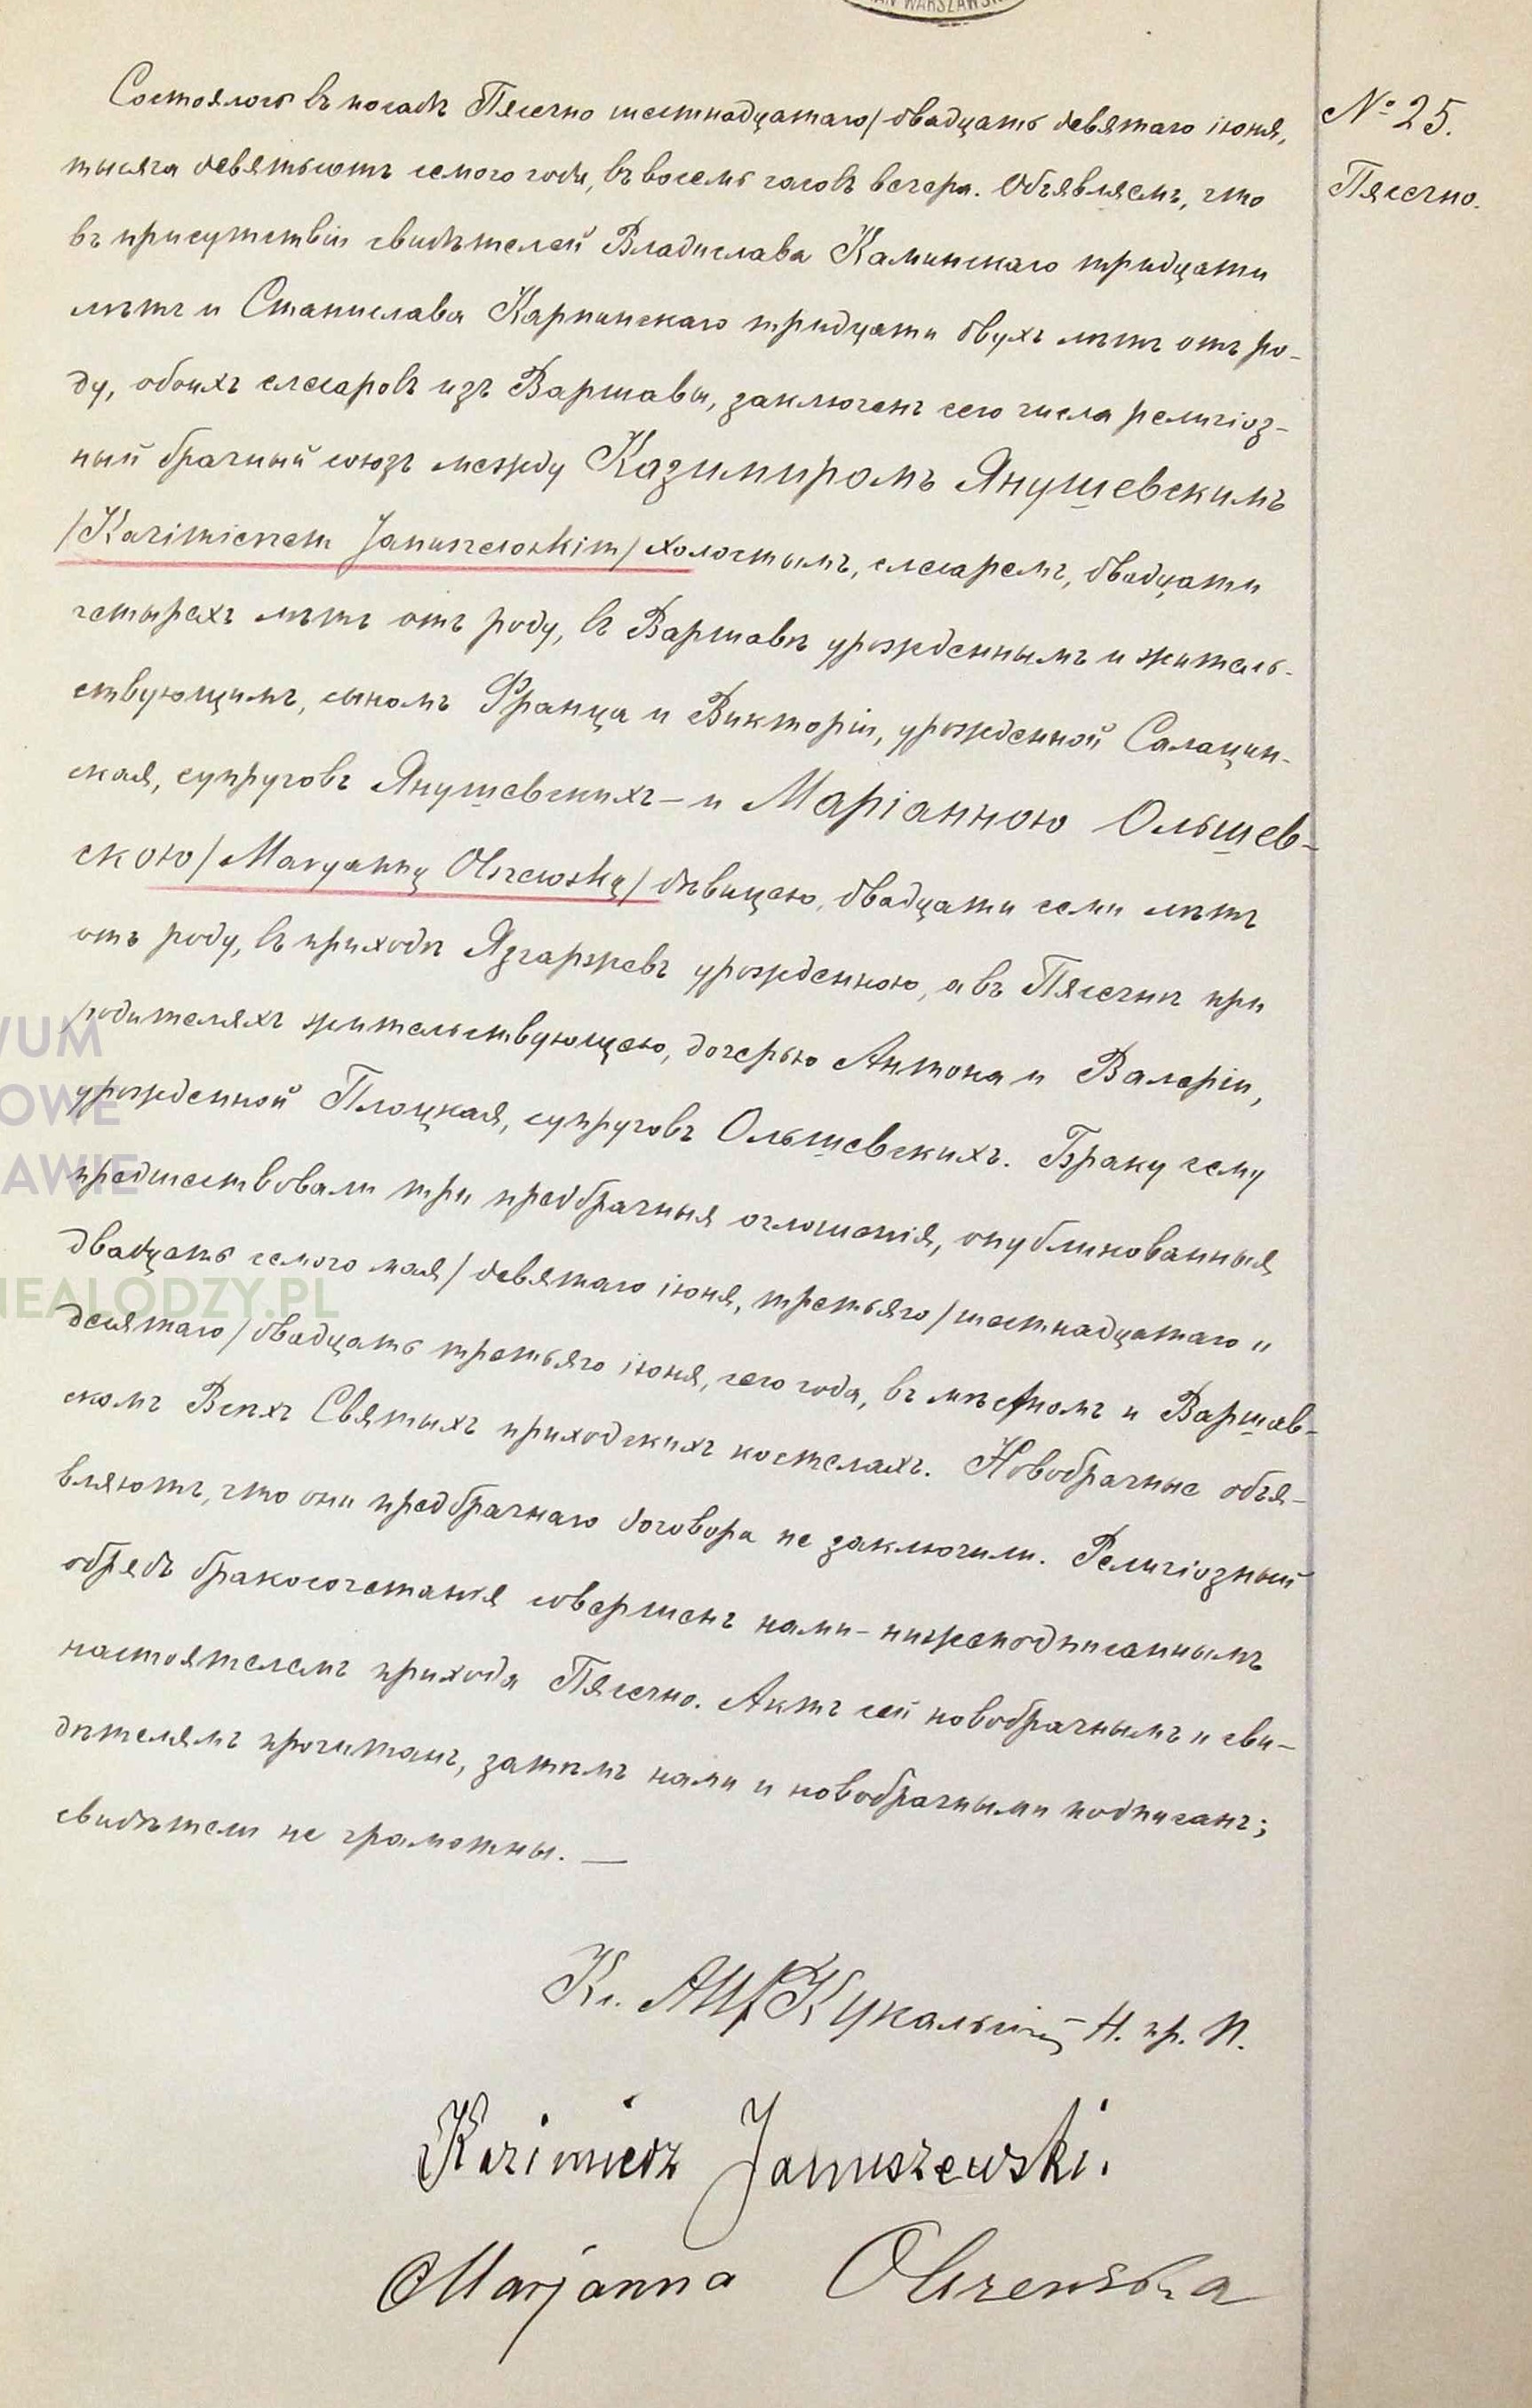 AN WARSZAWSK
№ 25.
Пясечно.
Состоялось въ посадѣ Пясечно шестнадцатаго/двадцать девятаго іюня,
тысяча девятьсотъ семого года, въ восемь часовъ вечера. Объявляемъ, что
въ присутствіи свидѣтелей Владислава Каминскаго тридцати
лѣтъ и Станислава Карпинскаго тридцати двухъ лѣтъ отъ ро-
ду, обоихъ слесаровъ изъ Варшавы, заключенъ сего числа религіоз-
ный брачный союзъ между Казимиромъ Янушевскимъ
/Kazimierzem Januszewskim/ холостымъ, слесаремъ, двадцати
четырехъ лѣтъ отъ роду, въ Варшавѣ урожденнымъ и житель-
ствующимъ, сыномъ Франца и Викторіи, урожденной Салацин-
ская, супруговъ Янушевскихъ – и Маріанною Ольшев-
скою /Maryanną Olszewską/ дѣвицею, двадцати семи лѣтъ
отъ роду, въ приходѣ Язгаржевъ урожденною, а въ Пясечнѣ при
родителяхъ жительствующею, дочерью Антона и Валеріи,
урожденной Плоцкая, супруговъ Ольшевскихъ. Браку сему
предшествовали три предбрачныя оглошенія, опубликованныя
двадцать семого мая/девятаго іюня, третьяго/шестнадцатаго и
десятаго/двадцать третьяго іюня, сего года, въ мѣстномъ и Варшав-
скомъ Всѣхъ Святыхъ приходскихъ костелахъ. Новобрачные объя-
вляютъ, что они предбрачнаго договора не заключили. Религіозный
обрядъ бракосочетанія совершенъ нами – нижеподписаннымъ
настоятелемъ прихода Пясечно. Актъ сей новобрачнымъ и сви-
дѣтелямъ прочитанъ, затѣмъ нами и новобрачными подписанъ;
свидѣтели не грамотны. —
Кс. Н. пр. П.
Kazimierz Januszewski.
Marjanna Olszewska
WUM
OWE
AWIE
NEALODZY.PL